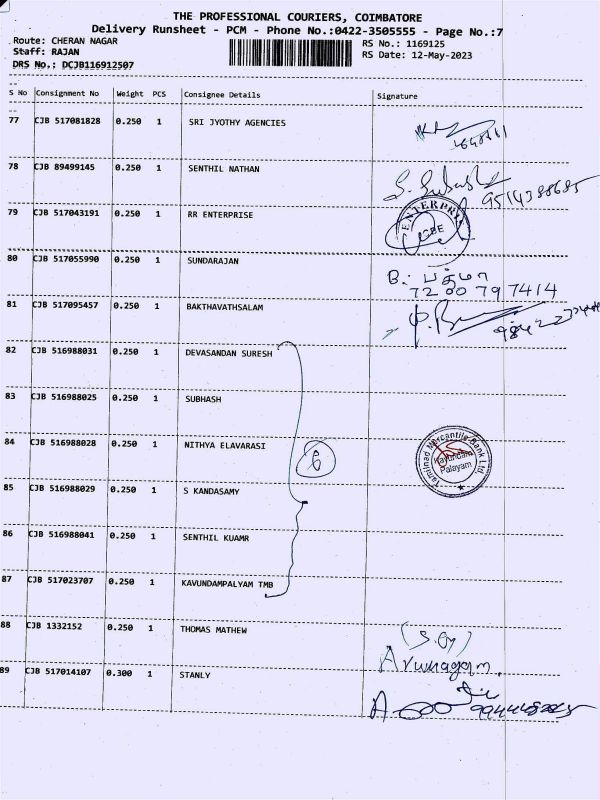 THE PROFESSIONAL COURIERS, COIMBATORE
Delivery Runsheet - PCM - Phone No.:0422-3505555 - Page No.:7
Route: CHERAN NAGAR
RS No.: 1169125
Staff: RAJAN
RS Date: 12-May-2023
DRS No.: DCJB116912507
S No Consignment No Weight PCS Consignee Details Signature
77 CJB 517081828 0.250 1 SRI JYOTHY AGENCIES
78 CJB 89499145 0.250 1 SENTHIL NATHAN
S. Subash 9514388685
79 CJB 517043191 0.250 1 RR ENTERPRISE
ENTERPRI
CBE
80 CJB 517055990 0.250 1 SUNDARAJAN
B. பத்மா
72 00 79 7414
81 CJB 517095457 0.250 1 BAKTHAVATHSALAM
82 CJB 516988031 0.250 1 DEVASANDAN SURESH
83 CJB 516988025 0.250 1 SUBHASH
84 CJB 516988028 0.250 1 NITHYA ELAVARASI
6
Tamilnad Mercantile Bank Ltd
Kavundam
Palayam
85 CJB 516988029 0.250 1 S KANDASAMY
86 CJB 516988041 0.250 1 SENTHIL KUAMR
87 CJB 517023707 0.250 1 KAVUNDAMPALYAM TMB
88 CJB 1332152 0.250 1 THOMAS MATHEW
Arumugam
89 CJB 517014107 0.300 1 STANLY